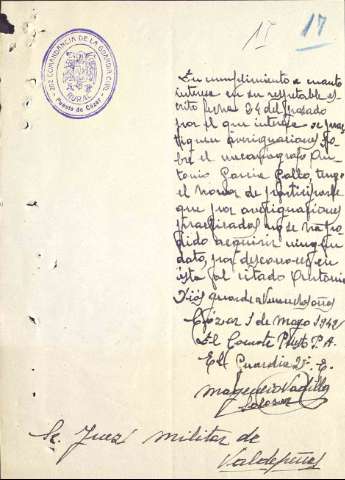 17 17
202 COMANDANCIA DE LA GUARDIA CIVIL
RURAL
Puesto de Cózar
En cumplimiento a cuanto
interesa en su respetable es-
crito fecha 24 del pasado
por el que interesa se prac-
tiquen averiguaciones so-
bre el mecanografo An-
tonio Garcia Gallo, tengo
el honor de participarle
que por averiguaciones
practicadas no se ha po-
dido adquirir ningun
dato, por desconocer en
esta al citado Antonio
Dios guarde a V. muchos años
Cózar 1 de mayo 1942
El Comte Puesto P.A.
El Guardia 2º
Vadillo
Sr. Juez militar de
Valdepeñas